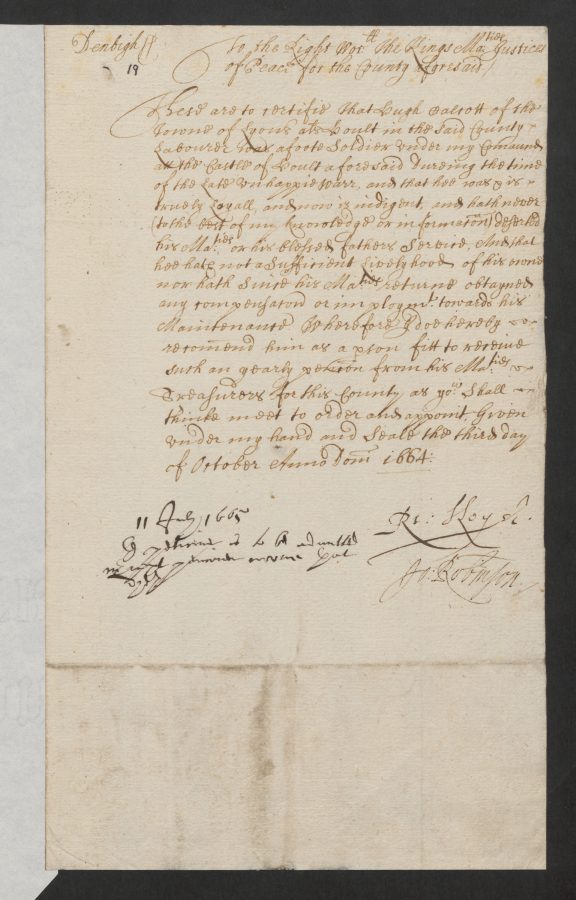 Denbigh ss
19
To the Right Wor:tt the Kings Ma:ties Justices
of Peace for the County aforesaid
These are to certifie that Hugh Dalcott of the
Towne of Lyons als Hoult in the said County
Labourer was a foote Soldier under my Comaund
att the Castle of Hoult aforesaid dureing the time
of the late unhappie warr, and that hee was & is
truely Loyall, and now is indigent, and hath never
(to the best of my knowledge or informacon) deserted
his Ma:ties or his blessed fathers Service, And that
hee hath not a Sufficient livelyhood of his owne
nor hath Since his Ma:ties returne obtayned
any compensacon or imploym:t towards his
Maintenance Wherefore I doe hereby
recomend him as a pson fitt to receive
such an yearly pencon from his Ma:ties
Treasurers for this County as yo:u Shall
thinke meet to order and appoint Given
under my hand and Seale the third day
of October Anno Dom 1664:
11 July 1665
petitioner is to be admitted
Ri: Lloyd.
Jo: Robinson